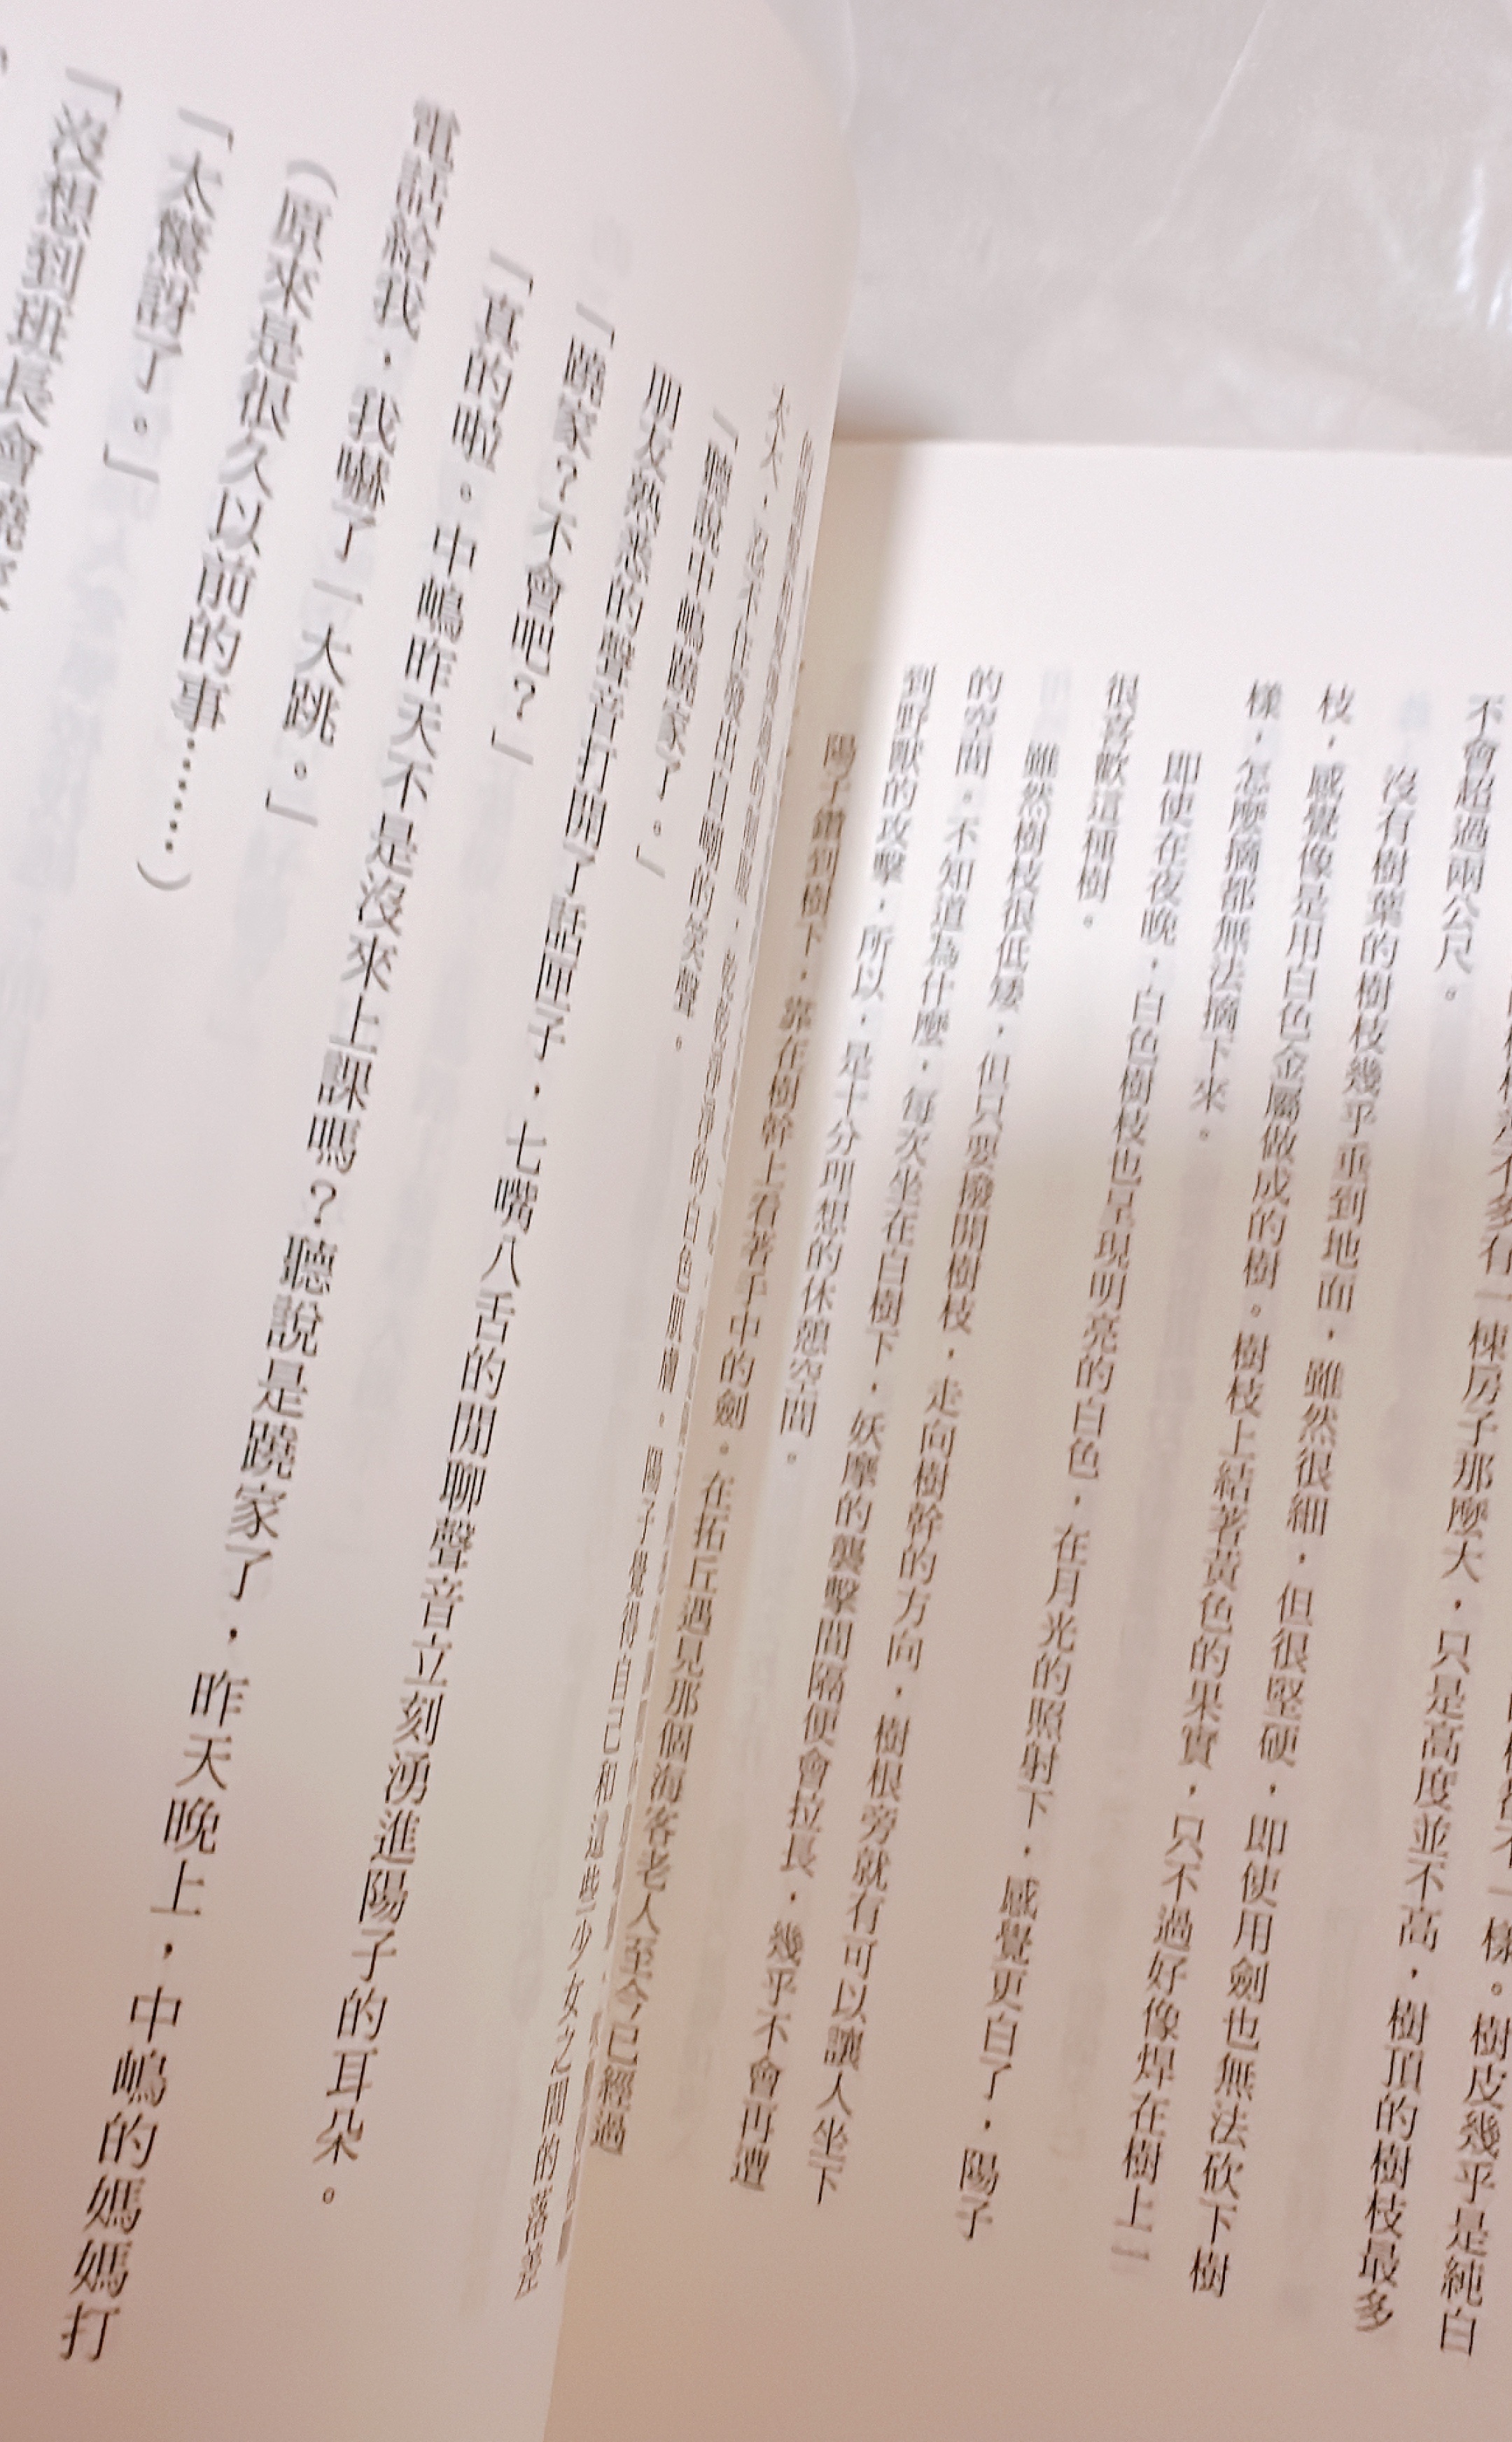 一樣。樹皮幾乎是純白
一棟房子那麼大，只是高度並不高，樹頂的樹枝最多
不會超過兩公尺。
沒有樹葉的樹枝幾乎垂到地面，雖然很細，但很堅硬，即使用劍也無法砍下樹
枝，感覺像是用白色金屬做成的樹。樹枝上結著黃色的果實，只不過好像焊在樹上一
樣，怎麼摘都無法摘下來。
即使在夜晚，白色樹枝也呈現明亮的白色，在月光的照射下，感覺更白了，陽子
很喜歡這種樹。
雖然樹枝很低矮，但只要撥開樹枝，走向樹幹的方向，樹根旁就有可以讓人坐下
的空間。不知道為什麼，每次坐在白樹下，妖魔的襲擊間隔便會拉長，幾乎不會再遭
到野獸的攻擊，所以，是十分理想的休憩空間。
陽子鑽到樹下，靠在樹幹上看著手中的劍。在拓丘遇見那個海客老人至今已經過
的白色肌膚。陽子覺得自己和這些少女之間的落差
太大，
「聽說中嶋蹺家了。」
朋友熟悉的聲音打開了話匣子，七嘴八舌的閒聊聲音立刻湧進陽子的耳朵。
「蹺家？不會吧？」
「真的啦。中嶋昨天不是沒來上課嗎？聽說是蹺家了，昨天晚上，中嶋的媽媽打
電話給我，我嚇了一大跳。」
（原來是很久以前的事……）
「太驚訝了。」
「沒想到班長會蹺家